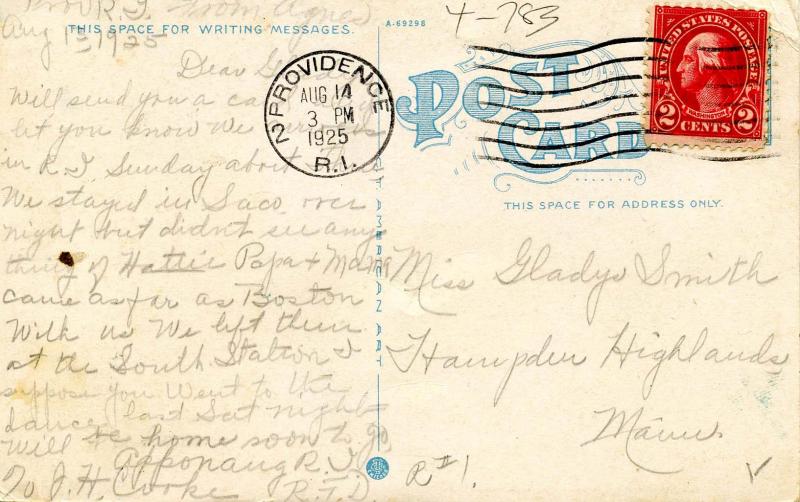 Prov R.I. From Agnes
Aug 13 1925
THIS SPACE FOR WRITING MESSAGES.
A-69298
4-783
UNITED STATES POSTAGE
WASHINGTON
2 CENTS 2
POST CARD
THIS SPACE FOR ADDRESS ONLY.
2 PROVIDENCE
AUG 14
3 PM
1925
R.I.
Dear
Will send you a
let you know we
in R.I. Sunday about
We stayed in Saco over
night but didn't see any
thing of Hattie Papa + Mama
came as far as Boston
With us We left them
at the South Station I
suppose you Went to the
dance last Sat night
Will be home soon to go
Apponaug R.I.
c/o J.H. Cooke R.F.D.
AMERICAN ART
Miss Gladys Smith
Hampden Highlands
Maine
R#1.